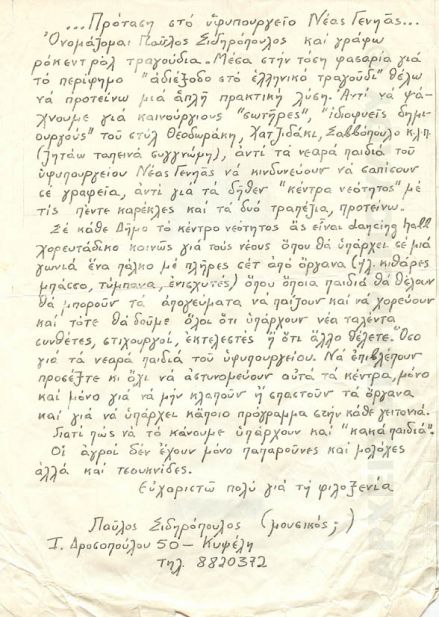 ...Πρόταση στό ὑφυπουργείο Νέας Γενηᾶς...
Ὀνομάζομαι Παῦλος Σιδηρόπουλος καί γράφω
ρόκεντρόλ τραγούδια. Μέσα στήν τόση φασαρία γιά
τό περίφημο "ἀδιέξοδο στό ἑλληνικό τραγοῦδι" θέλω
νά προτείνω μιά ἁπλῆ πρακτική λύση. Ἀντί νά ψά-
χνουμε γιά καινούργιους "σωτῆρες", "ἰδιοφυεῖς δημι-
ουργούς" τοῦ στύλ Θεοδωράκη, Χατζιδάκι, Σαββόπουλο κ.λ.π.
(ζητάω ταπεινά συγγνώμη), ἀντί τά νεαρά παιδιά τοῦ
ὑφυπουργείου Νέας Γενηᾶς νά κινδυνεύουν νά σαπίσουν
σέ γραφεία, ἀντί γιά τά δῆθεν "κέντρα νεότητος" μέ
τίς πέντε καρέκλες καί τά δυό τραπέζια, προτείνω..
Σέ κάθε Δῆμο τό κέντρο νεότητος ἄς εἶναι dancing hall
χορευτάδικο κοινῶς γιά τούς νέους ὅπου θά ὑπάρχει σέ μιά
γωνιά ἕνα πάλκο μέ πλῆρες σέτ ἀπό ὄργανα (ἠλ. κιθάρες
μπάσσο, τύμπανα, ἐνισχυτές) ὅπου ὅποια παιδιά θά θέλουν
θά μποροῦν τά ἀπογεύματα νά παίζουν καί νά χορεύουν
καί τότε θά δοῦμε ὅλοι ὅτι ὑπάρχουν νέα ταλέντα
συνθέτες, στιχουργοί, ἐκτελεστές ἤ ὅτι ἄλλο θέλετε. Ὅσο
γιά τά νεαρά παιδιά τοῦ ὑφυπουργείου. Νά ἐπιβλέπουν
προσέξτε κι ὄχι νά ἀστυνομεύουν αὐτά τά κέντρα, μόνο
καί μόνο γιά νά μήν κλαποῦν ἤ σπαστοῦν τά ὄργανα
καί γιά νά ὑπάρχει κάποιο πρόγραμμα στήν κάθε γειτονιά.
Γιατί πῶς νά τό κάνουμε ὑπάρχουν καί "κακά παιδιά".
Οἱ ἀγροί δέν ἔχουν μόνο παπαροῦνες καί μολόχες
ἀλλά καί τσουκνίδες.
Εὐχαριστῶ πολύ γιά τή φιλοξενία
Παῦλος Σιδηρόπουλος (μουσικός;)
Ι. Δροσοπούλου 50 – Κυψέλη
τηλ. 8820372